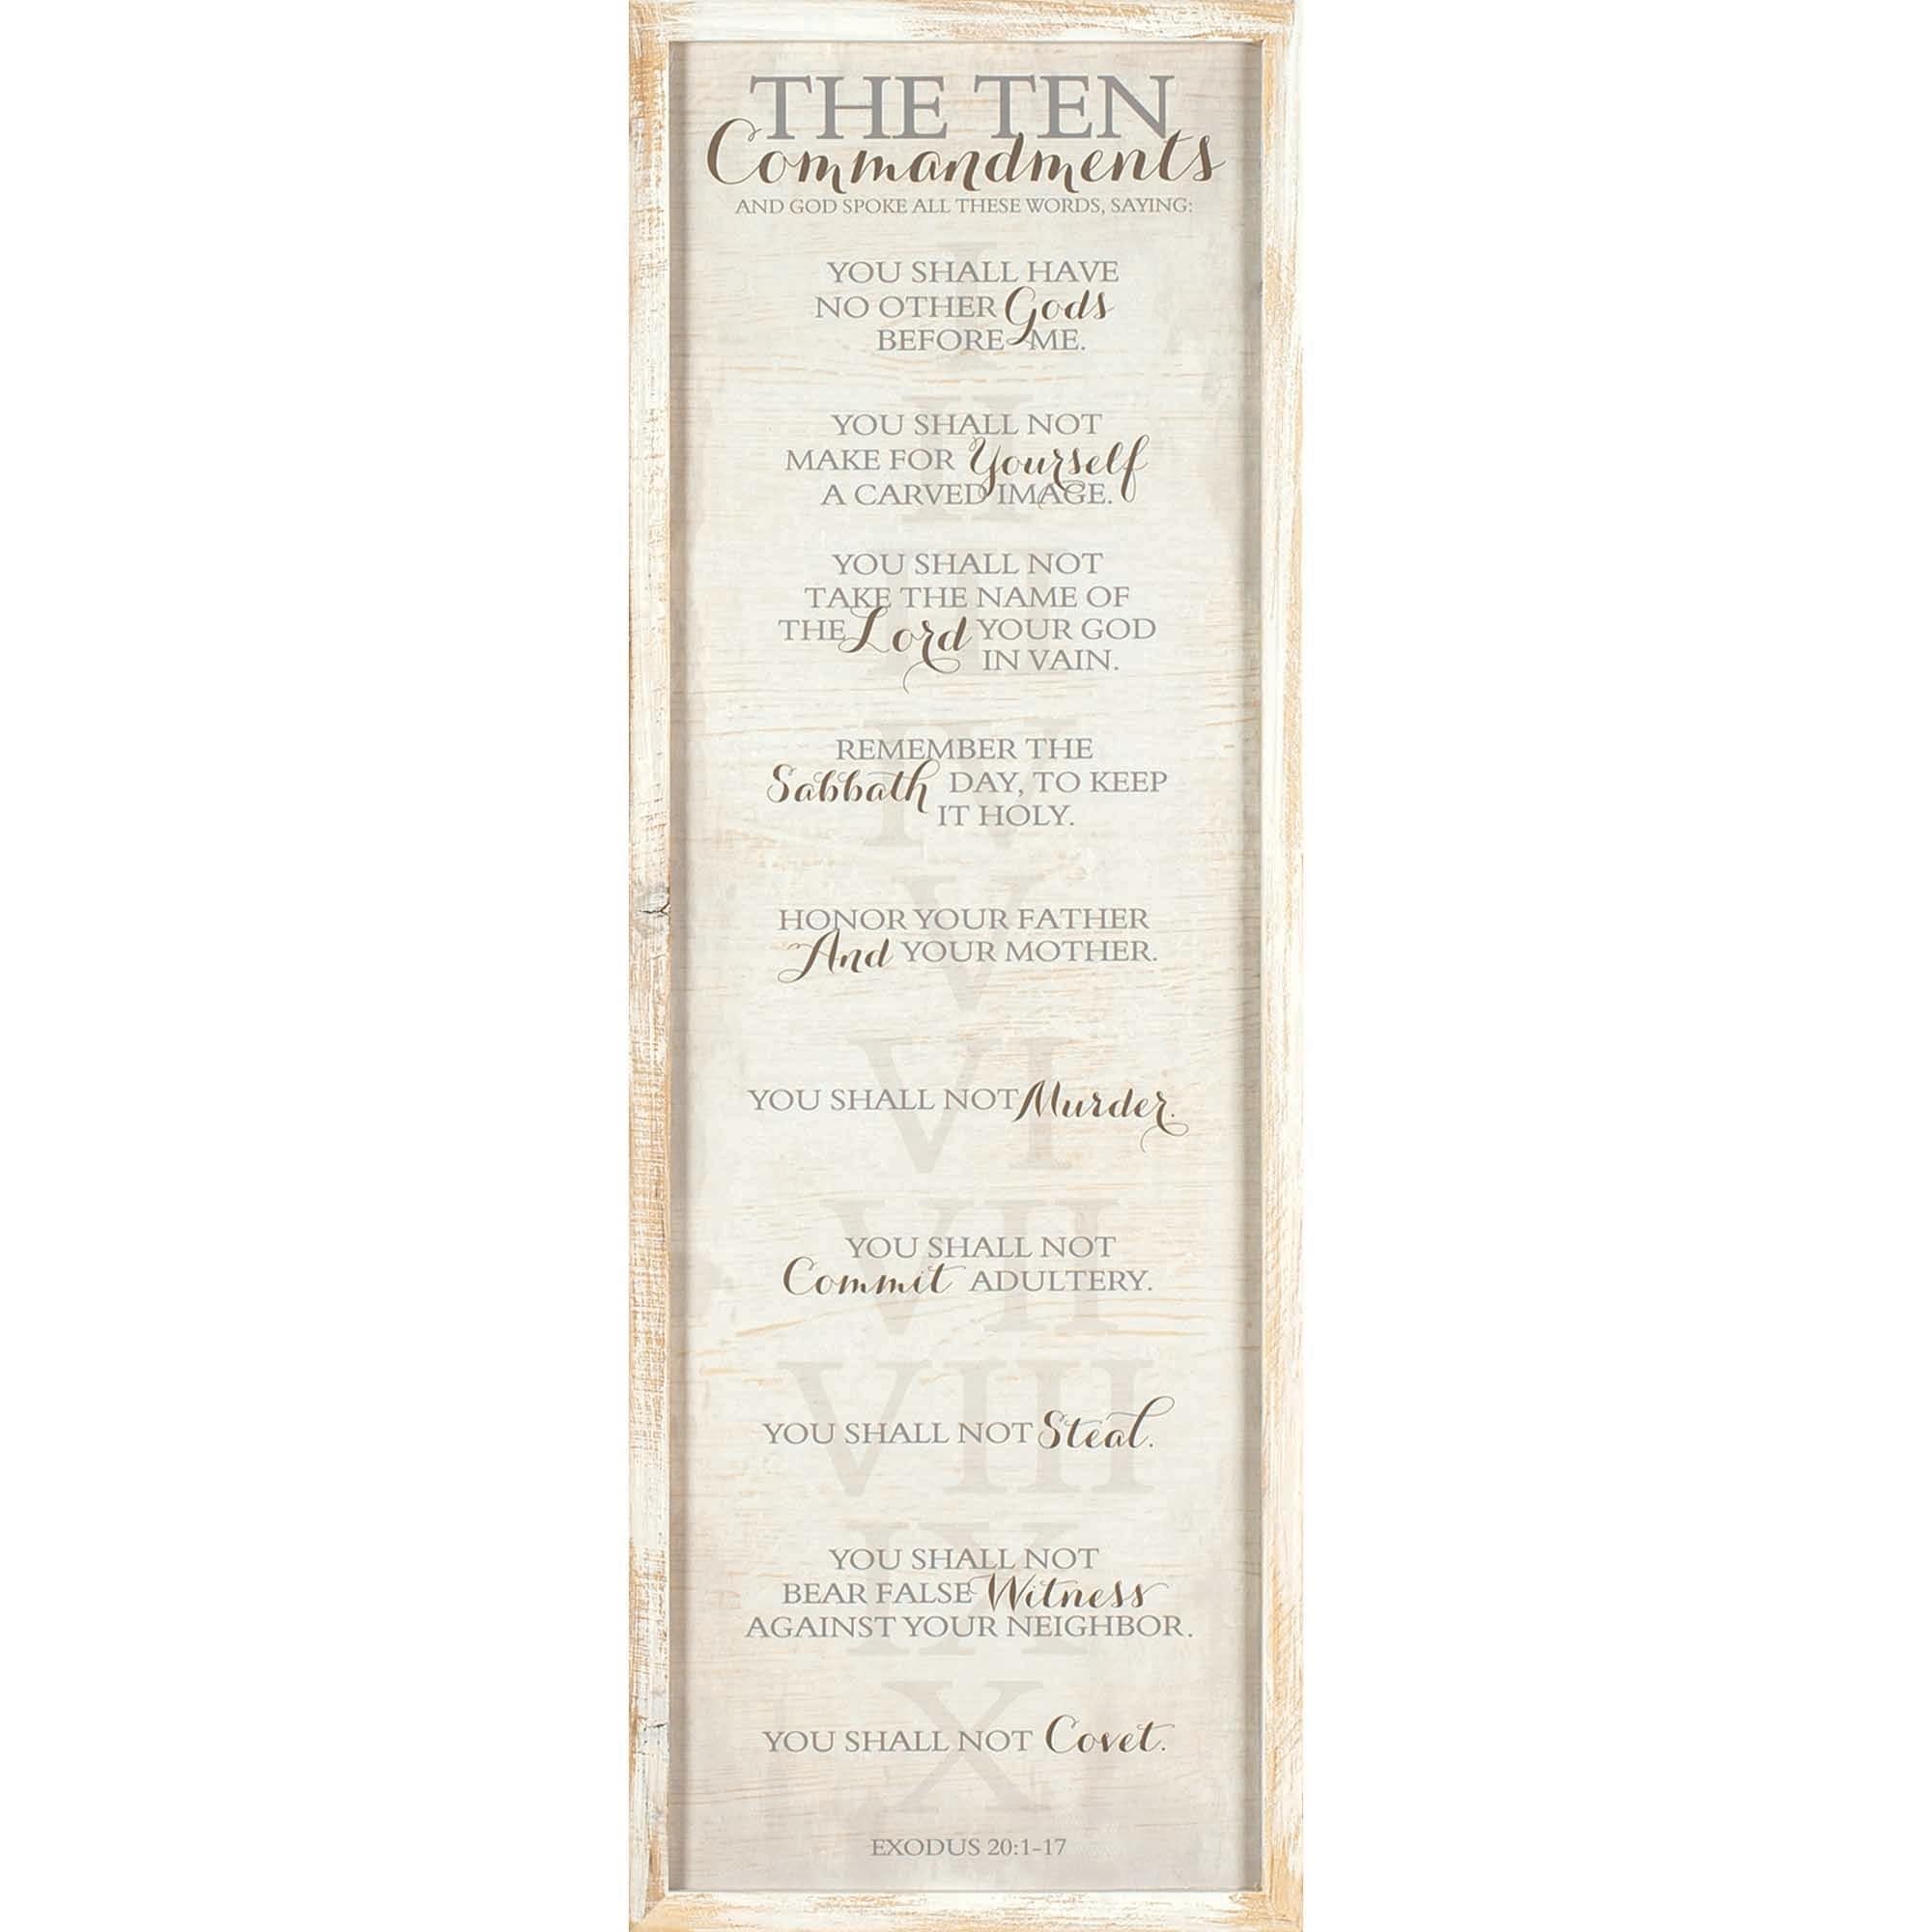 THE TEN
Commandments
AND GOD SPOKE ALL THESE WORDS, SAYING:
I
YOU SHALL HAVE
NO OTHER Gods
BEFORE ME.
II
YOU SHALL NOT
MAKE FOR Yourself
A CARVED IMAGE.
III
YOU SHALL NOT
TAKE THE NAME OF
THE Lord YOUR GOD
IN VAIN.
IV
REMEMBER THE
Sabbath DAY, TO KEEP
IT HOLY.
V
HONOR YOUR FATHER
And YOUR MOTHER.
VI
YOU SHALL NOT Murder.
VII
YOU SHALL NOT
Commit ADULTERY.
VIII
YOU SHALL NOT Steal.
IX
YOU SHALL NOT
BEAR FALSE Witness
AGAINST YOUR NEIGHBOR.
X
YOU SHALL NOT Covet.
EXODUS 20:1-17